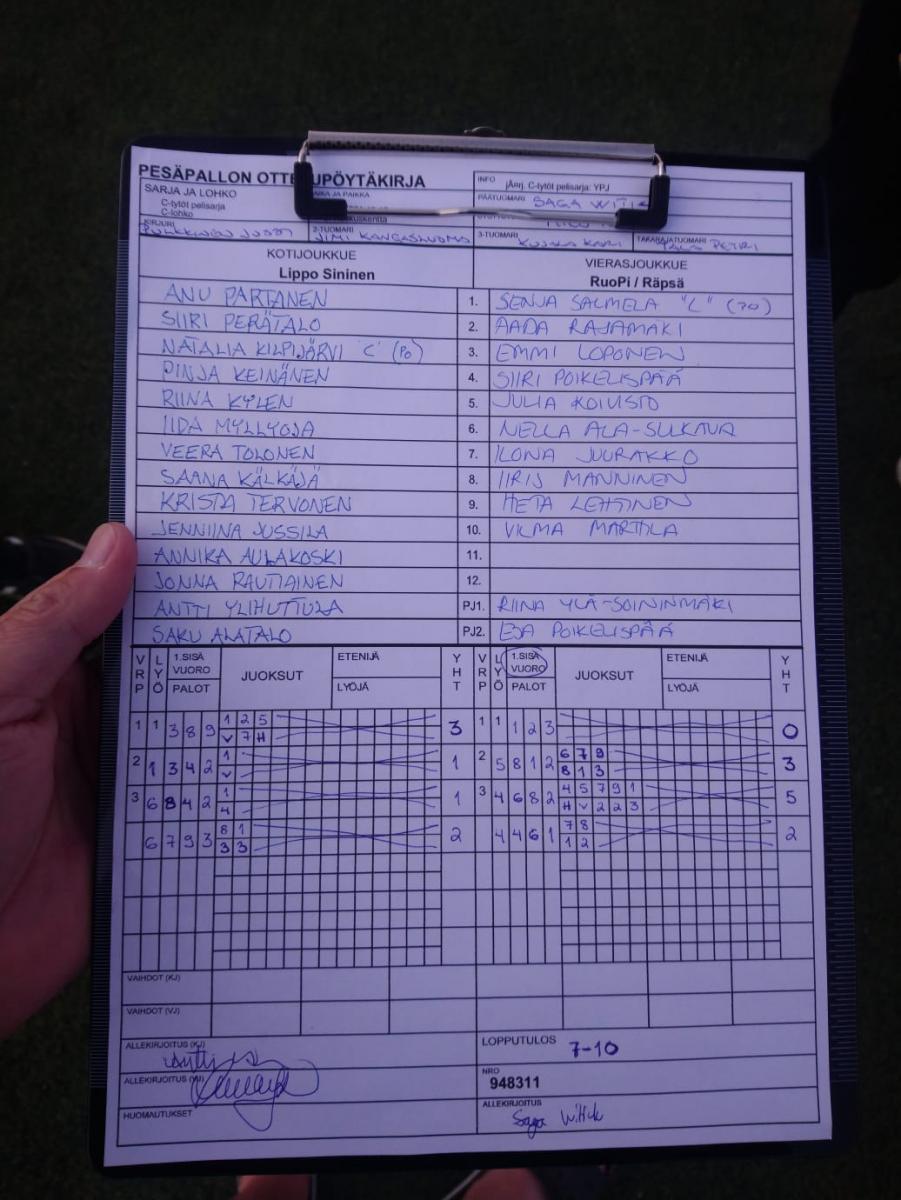 PESÄPALLON OTTELUPÖYTÄKIRJA
INFO jÄrj. C-tytöt pelisarja: YPJ
SARJA JA LOHKO
C-tytöt pelisarja
C-lohko
AIKA JA PAIKKA
PÄÄTUOMARI SAGA
KIRJURI
2-TUOMARI JIMI KANGASLUOMA
3-TUOMARI KUJALA KARI
TAKARAJATUOMARI PETRI
KOTIJOUKKUE
Lippo Sininen
VIERASJOUKKUE
RuoPi / Räpsä
ANU PARTANEN 1. SENJA SALMELA "C" (PO)
SIIRI PERÄTALO 2. AADA RAJAMÄKI
NATALIA KILPIJÄRVI "C" (PO) 3. EMMI LOPONEN
PINJA KEINÄNEN 4. SIIRI POIKELISPÄÄ
RIINA KYLEN 5. JULIA KOIVISTO
IIDA MYLLYOJA 6. NELLA ALA-SULKAVA
VEERA TOLONEN 7. ILONA JUURAKKO
SAANA KÄLKÄJÄ 8. IIRIS MANNINEN
KRISTA TERVONEN 9. HETA LEHTINEN
JENNIINA JUSSILA 10. VILMA MARTTILA
ANNIKA AULAKOSKI 11.
JONNA RAUTIAINEN 12.
ANTTI YLIHUTTULA PJ1. RIINA YLÄ-SOININMÄKI
SAKU ALATALO PJ2. EJA POIKELISPÄÄ
VRP LYÖ 1.SISÄ VUORO PALOT JUOKSUT ETENIJÄ LYÖJÄ YHT VRP LYÖ 1.SISÄ VUORO PALOT JUOKSUT ETENIJÄ LYÖJÄ YHT
1 1 3 8 9 1 2 5 3 1 1 1 2 3 0
V 7 H
2 1 3 4 2 1 1 2 5 8 1 2 6 7 9 3
V 8 1 3
3 6 8 4 2 1 1 3 4 6 8 2 4 5 7 9 1 5
4 H V 2 2 3
6 7 9 3 8 1 2 4 4 6 1 7 8 2
3 3 1 2
VAIHDOT (KJ)
VAIHDOT (VJ)
ALLEKIRJOITUS (KJ)
LOPPUTULOS 7-10
ALLEKIRJOITUS (VJ)
NRO
948311
HUOMAUTUKSET
ALLEKIRJOITUS
Saga